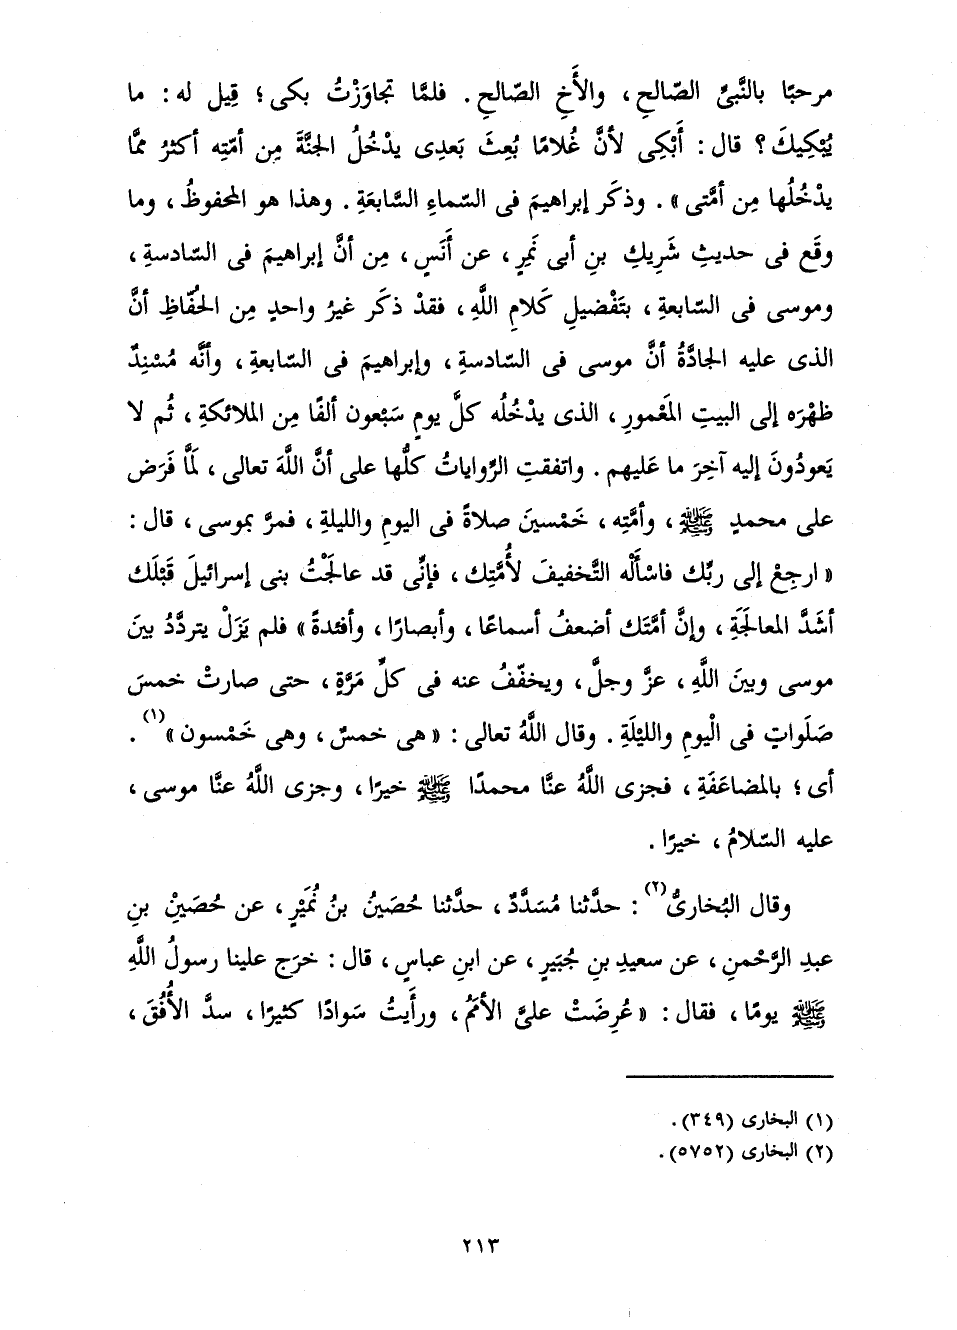 مرحبًا بالنَّبىِّ الصّالحِ ، والأَخِ الصّالحِ . فلمَّا تجاوَزْتُ بكى ؛ قِيل له : ما
يُبْكِيكَ ؟ قال : أَبْكِى لأنَّ غُلامًا بُعِثَ بَعدِى يدْخُلُ الجنَّةَ مِن أمّتِه أكثرُ ممَّا
يدْخُلُها مِن أمَّتى » . وذكَر إبراهيمَ فى السّماءِ السَّابعَةِ . وهذا هو المحفوظُ ، وما
وقَع فى حديثِ شَرِيكِ بنِ أبى نَمِرٍ ، عن أَنَسٍ ، مِن أنَّ إبراهيمَ فى السّادسةِ ،
وموسى فى السّابعةِ ، بتَفْضيلِ كَلامِ اللَّهِ ، فقدْ ذكَر غيرُ واحدٍ مِن الحُفّاظِ أنَّ
الذى عليه الجادَّةُ أنَّ موسى فى السّادسةِ ، وإبراهيمَ فى السّابعةِ ، وأنَّه مُسْنِدٌ
ظهْرَه إلى البيتِ المَعْمورِ ، الذى يدْخُلُه كلَّ يومٍ سَبْعون ألفًا مِن الملائكةِ ، ثُم لا
يَعودُونَ إليه آخِرَ ما عَليهم . واتفقتِ الرِّواياتُ كلُّها على أنَّ اللَّهَ تعالى ، لَمَّا فَرَض
على محمدٍ ﷺ ، وأمَّتِه ، خَمْسينَ صلاةً فى اليومِ والليلةِ ، فمرَّ بموسى ، قال :
« ارجِعْ إلى ربِّك فاسْأَلْه التَّخفيفَ لأُمَّتِك ، فإنِّى قد عالجْتُ بنى إسرائيلَ قَبْلَك
أشَدَّ المعالجَةِ ، وإنَّ أمَّتَك أضعفُ أسماعًا ، وأبصارًا ، وأفئدةً » فلم يَزَلْ يتردَّدُ بينَ
موسى وبينَ اللَّهِ ، عزَّ وجلَّ ، ويخفّفُ عنه فى كلِّ مَرَّةٍ ، حتى صارتْ خمسَ
صَلَواتٍ فى الْيومِ والليْلَةِ . وقال اللَّهُ تعالى : « هى خمسٌ ، وهى خَمْسون »(١) .
أى ؛ بالمضاعَفَةِ ، فجزى اللَّهُ عنَّا محمدًا ﷺ خيرًا ، وجزى اللَّهُ عنَّا موسى ،
عليه السّلامُ ، خيرًا .
وقال البُخارىُّ(٢) : حدَّثنا مُسَدَّدٌ ، حدَّثنا حُصَينُ بنُ نُمَيْرٍ ، عن حُصَيْنِ بنِ
عبدِ الرَّحْمنِ ، عن سعيدِ بنِ جُبَيرٍ ، عن ابنِ عباسٍ ، قال : خرَج علينا رسولُ اللَّهِ
ﷺ يومًا ، فقال : « عُرِضَتْ علىَّ الأُممُ ، ورأَيتُ سَوادًا كثيرًا ، سدَّ الأُفُقَ ،
(١) البخارى (٣٤٩) .
(٢) البخارى (٥٧٥٢) .
٢١٣